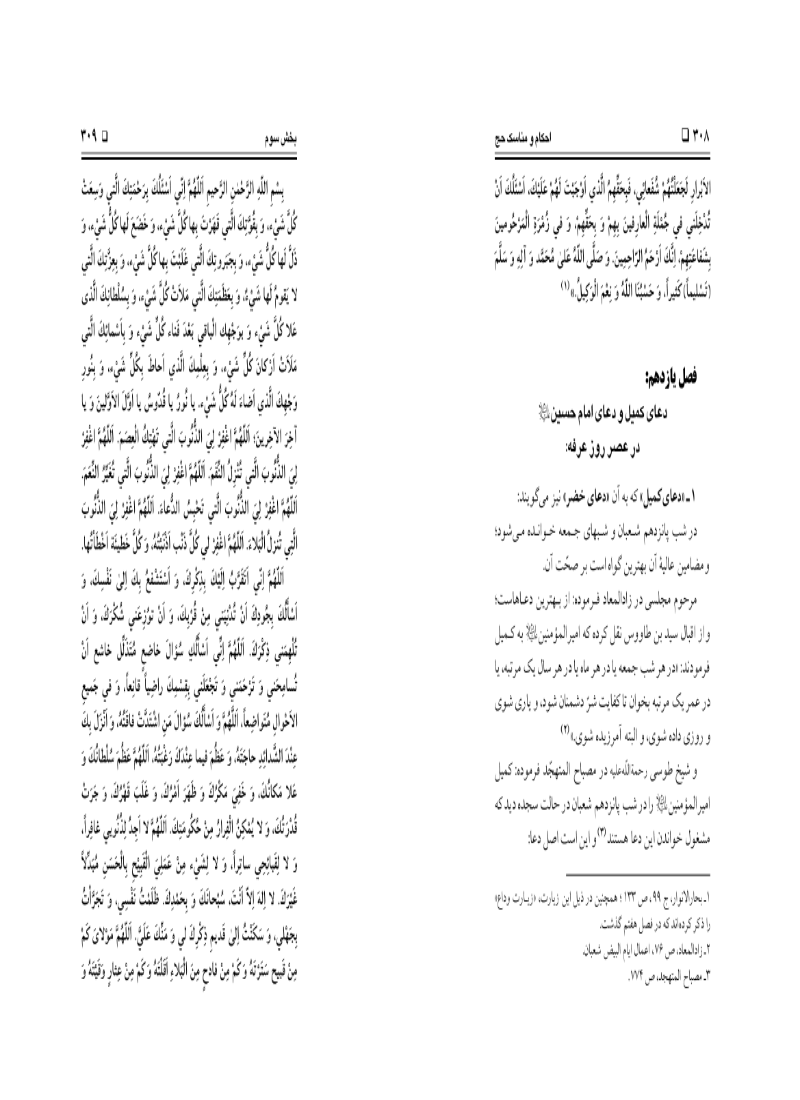 ۳۰۸ ❑ احکام و مناسک حج
الاَبْرارِ لَجَعَلْتُهُمْ شُفَعائِي، فَبِحَقِّهِمُ الَّذي اَوْجَبْتَ لَهُمْ عَلَيْكَ، اَسْئَلُكَ اَنْ
تُدْخِلَني في جُمْلَةِ الْعارِفينَ بِهِمْ وَ بِحَقِّهِمْ، وَ في زُمْرَةِ الْمَرْحُومينَ
بِشَفاعَتِهِمْ، اِنَّكَ اَرْحَمُ الرّاحِمينَ. وَ صَلَّى اللّهُ عَلى مُحَمَّد وَ آلِهِ وَ سَلَّمَ
(تَسْليماً) كَثيراً، وَ حَسْبُنَا اللّهُ وَ نِعْمَ الْوَكيلُ.»(۱)
فصل یازدهم:
دعای کمیل و دعای امام حسین
در عصر روز عرفه:
۱ـ «دعای کمیل» که به آن «دعای خضر» نیز می‌گویند:
در شب پانزدهم شعبان و شبهای جمعه خوانده می‌شود؛
و مضامین عالیهٔ آن بهترین گواه است بر صحّت آن.
مرحوم مجلسی در زادالمعاد فرموده: از بهترین دعاهاست؛
و از اقبال سید بن طاووس نقل کرده که امیرالمؤمنین به کمیل
فرمودند: «در هر شب جمعه یا در هر ماه یا در هر سال یک مرتبه، یا
در عمر یک مرتبه بخوان تا کفایت شرّ دشمنان شود، و یاری شوی
و روزی داده شوی، و البته آمرزیده شوی.»(۲)
و شیخ طوسی رحمةاللّه‌علیه در مصباح المتهجّد فرموده: کمیل
امیرالمؤمنین را در شب پانزدهم شعبان در حالت سجده دید که
مشغول خواندن این دعا هستند(۳) و این است اصل دعا:
۱ـ بحارالانوار، ج ۹۹، ص ۱۳۳ ؛ همچنین در ذیل این زیارت، «زیارت وداع»
را ذکر کرده‌اند که در فصل هفتم گذشت.
۲ـ زادالمعاد، ص ۷۶، اعمال ایام البیض شعبان.
۳ـ مصباح المتهجد، ص ۷۷۴.
بخش سوم ❑ ۳۰۹
بِسْمِ اللّهِ الرَّحْمٰنِ الرَّحيمِ اَللّهُمَّ اِنّي اَسْئَلُكَ بِرَحْمَتِكَ الَّتي وَسِعَتْ
كُلَّ شَيْء، وَ بِقُوَّتِكَ الَّتي قَهَرْتَ بِها كُلَّ شَيْء، وَ خَضَعَ لَها كُلُّ شَيْء، وَ
ذَلَّ لَها كُلُّ شَيْء، وَ بِجَبَروتِكَ الَّتي غَلَبْتَ بِها كُلَّ شَيْء، وَ بِعِزَّتِكَ الَّتي
لا يَقومُ لَها شَيْءٌ، وَ بِعَظَمَتِكَ الَّتي مَلاَتْ كُلَّ شَيْء، وَ بِسُلْطانِكَ الَّذى
عَلا كُلَّ شَيْء وَ بِوَجْهِك الْباقي بَعْدَ فَناء كُلِّ شَيْء وَ بِاَسْمائِكَ الَّتي
مَلَاَتْ اَرْكانَ كُلِّ شَيْء، وَ بِعِلْمِكَ الَّذي اَحاطَ بِكُلِّ شَيْء، وَ بِنُورِ
وَجْهِكَ الَّذي اَضاءَ لَهُ كُلُّ شَيْء. يا نُورُ يا قُدّوسُ يا اَوَّلَ الاَوَّلينَ وَ يا
آخِرَ الآخِرينَ؛ اَللّهُمَّ اغْفِرْ لِيَ الذُّنُوبَ الَّتي تَهْتِكُ الْعِصَمَ. اَللّهُمَّ اغْفِرْ
لِيَ الذُّنُوبَ الَّتي تُنْزِلُ النِّقَمَ. اَللّهُمَّ اغْفِرْ لِيَ الذُّنُوبَ الَّتي تُغَيِّرُ النِّعَمَ.
اَللّهُمَّ اغْفِرْ لِيَ الذُّنُوبَ الَّتي تَحْبِسُ الدُّعاءَ. اَللّهُمَّ اغْفِرْ لِيَ الذُّنُوبَ
الَّتِي تُنْزِلُ الْبَلاءَ. اَللّهُمَّ اغْفِرْ لي كُلَّ ذَنْب اَذْنَبْتُهُ، وَ كُلَّ خَطيئَة اَخْطَأْتُها.
اَللّهُمَّ اِنّي اَتَقَرَّبُ اِلَيْكَ بِذِكْرِكَ، وَ اَسْتَشْفِعُ بِكَ اِلىٰ نَفْسِكَ، وَ
اَسْأَلُكَ بِجُودِكَ اَنْ تُدْنِيَني مِنْ قُرْبِكَ، وَ اَنْ تُوْزِعَني شُكْرَكَ، وَ اَنْ
تُلْهِمَني ذِكْرَكَ. اَللّهُمَّ اِنّي اَسْأَلُكَ سُؤالَ خاضِعٍ مُتَذَلِّل خاشِع اَنْ
تُسامِحَني وَ تَرْحَمَني وَ تَجْعَلَني بِقِسْمِكَ راضِياً قانِعاً، وَ في جَميعِ
الاَحْوالِ مُتَواضِعاً. اَللّهُمَّ وَ اَسْأَلُكَ سُؤالَ مَنِ اشْتَدَّتْ فاقَتُهُ، وَ اَنْزَلَ بِكَ
عِنْدَ الشَّدائِدِ حاجَتَهُ، وَ عَظُمَ فيما عِنْدَكَ رَغْبَتُهُ. اَللّهُمَّ عَظُمَ سُلْطانُكَ وَ
عَلا مَكانُكَ، وَ خَفِيَ مَكْرُكَ وَ ظَهَرَ اَمْرُكَ، وَ غَلَبَ قَهْرُكَ، وَ جَرَتْ
قُدْرَتُكَ، وَ لا يُمْكِنُ الْفِرارُ مِنْ حُكُومَتِكَ. اَللّهُمَّ لا اَجِدُ لِذُنُوبي غافِراً،
وَ لا لِقَبائِحي ساتِراً، وَ لا لِشَيْء مِنْ عَمَلِيَ الْقَبيْحِ بِالْحَسَنِ مُبَدِّلاً
غَيْرَكَ. لا اِلهَ اِلاّ اَنْتَ، سُبْحانَكَ وَ بِحَمْدِكَ. ظَلَمْتُ نَفْسِي، وَ تَجَرَّأتُ
بِجَهْلي، وَ سَكَنْتُ اِلىٰ قَديمِ ذِكْرِكَ لي وَ مَنِّكَ عَلَيَّ. اَللّهُمَّ مَوْلايَ كَمْ
مِنْ قَبيح سَتَرْتَهُ وَ كَمْ مِنْ فادحٍ مِنَ الْبَلاءِ اَقَلْتَهُ وَ كَمْ مِنْ عِثارٍ وَقَيْتَهُ وَ